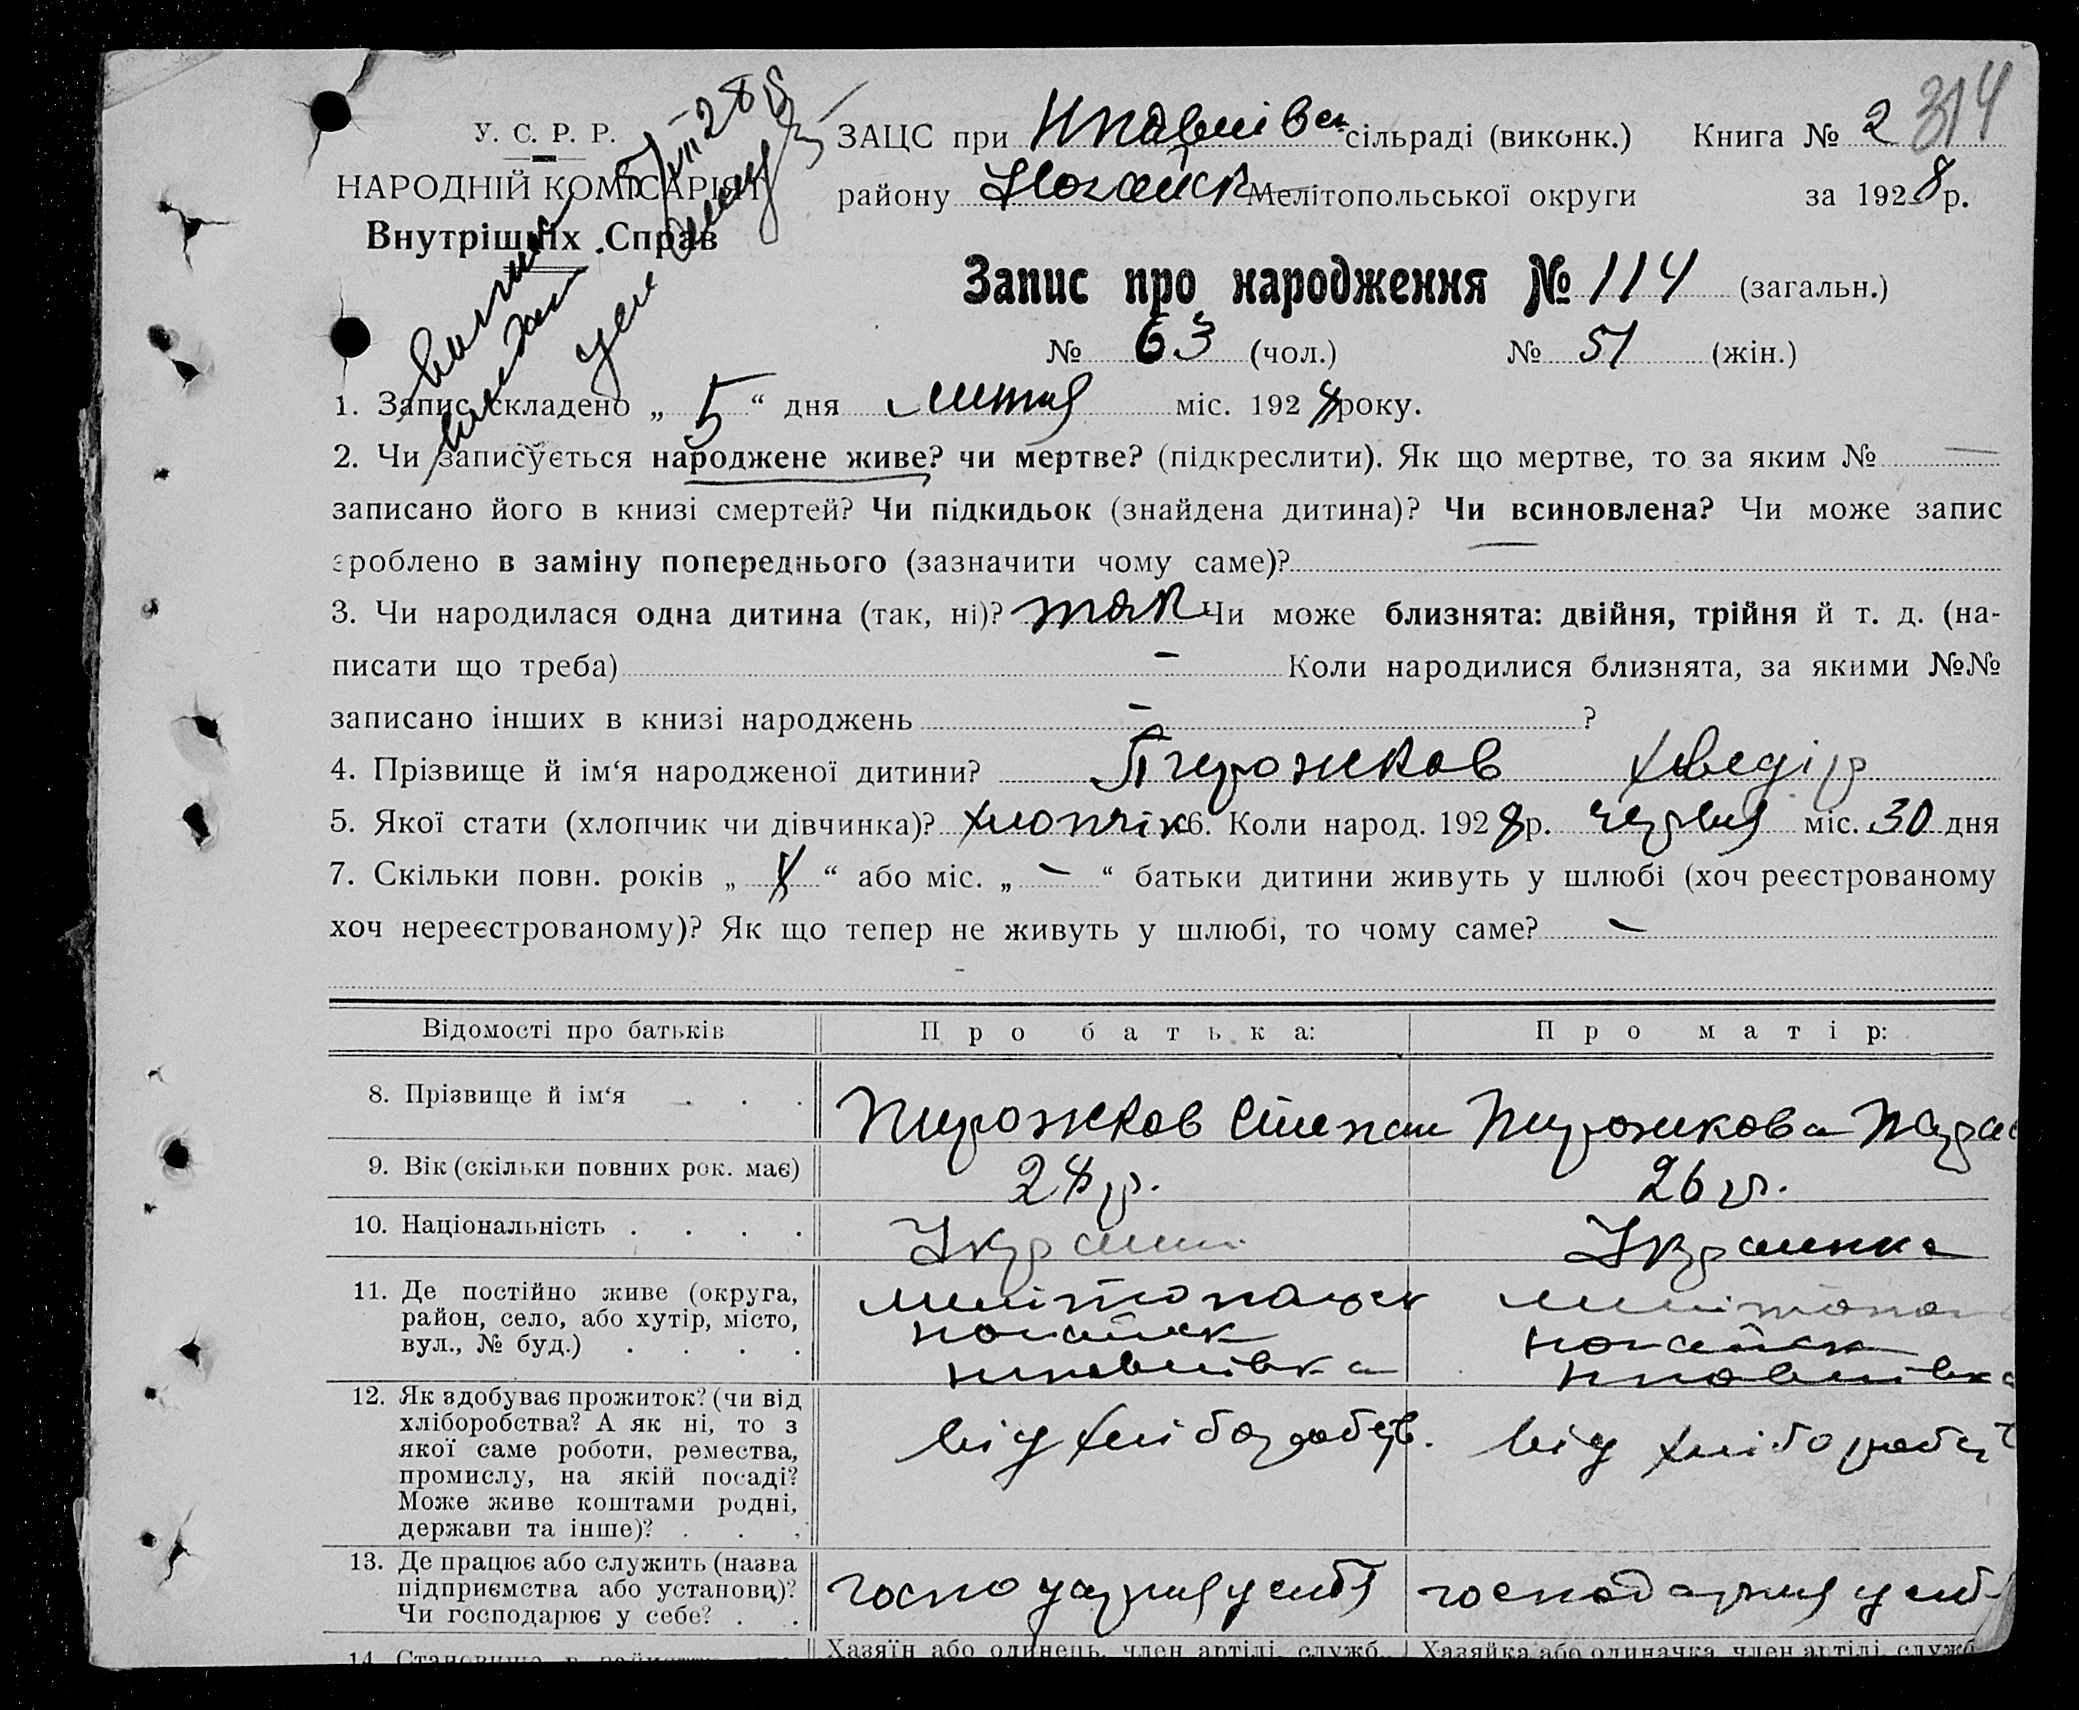 314
У. С. Р. Р.
НАРОДНІЙ КОМІСАРІЯТ
Внутрішніх Справ
ЗАЦС при Нпавлівск сільраді (виконк.) Книга № 2
району Ногайск Мелітопольської округи за 1928 р.
Запис про народження № 114 (загальн.)
№ 63 (чол.) № 51 (жін.)
1. Запис складено „ 5 “ дня липня міс. 1928 року.
2. Чи записується народжене живе? чи мертве? (підкреслити). Як що мертве, то за яким № —
записано його в книзі смертей? Чи підкидьок (знайдена дитина)? Чи всиновлена? Чи може запис
зроблено в заміну попереднього (зазначити чому саме)? —
3. Чи народилася одна дитина (так, ні)? так Чи може близнята: двійня, трійня й т. д. (на-
писати що треба) — Коли народилися близнята, за якими №№
записано інших в книзі народжень — ?
4. Прізвище й ім‘я народженої дитини? Пирожков Хведір
5. Якої стати (хлопчик чи дівчинка)? хлопчік 6. Коли народ. 1928 р. червня міс. 30 дня
7. Скільки повн. років „ “ або міс. „ — “ батьки дитини живуть у шлюбі (хоч реєстрованому
хоч нереєстрованому)? Як що тепер не живуть у шлюбі, то чому саме? —
Відомості про батьків Про батька: Про матір:
8. Прізвище й ім‘я Пирожков Степан Пирожкова Парас
9. Вік (скільки повних рок. має) 28 р. 26 р.
10. Національність Українец Українка
11. Де постійно живе (округа,
район, село, або хутір, місто,
вул., № буд.)
Мелітопольск
Ногайск
Нпавлівка
Мелітопол
Ногайск
Нпавлівка
12. Як здобуває прожиток? (чи від
хліборобства? А як ні, то з
якої саме роботи, ремества,
промислу, на якій посаді?
Може живе коштами родні,
держави та інше)?
від хлібороб.
від хлібороб
13. Де працює або служить (назва
підприємства або установи)?
Чи господарює у себе?
господарня у себя
господарня у себ
14. Становище в
Хазяїн або одинець, член артілі, служб.
Хазяйка або одиначка, член артілі, служб